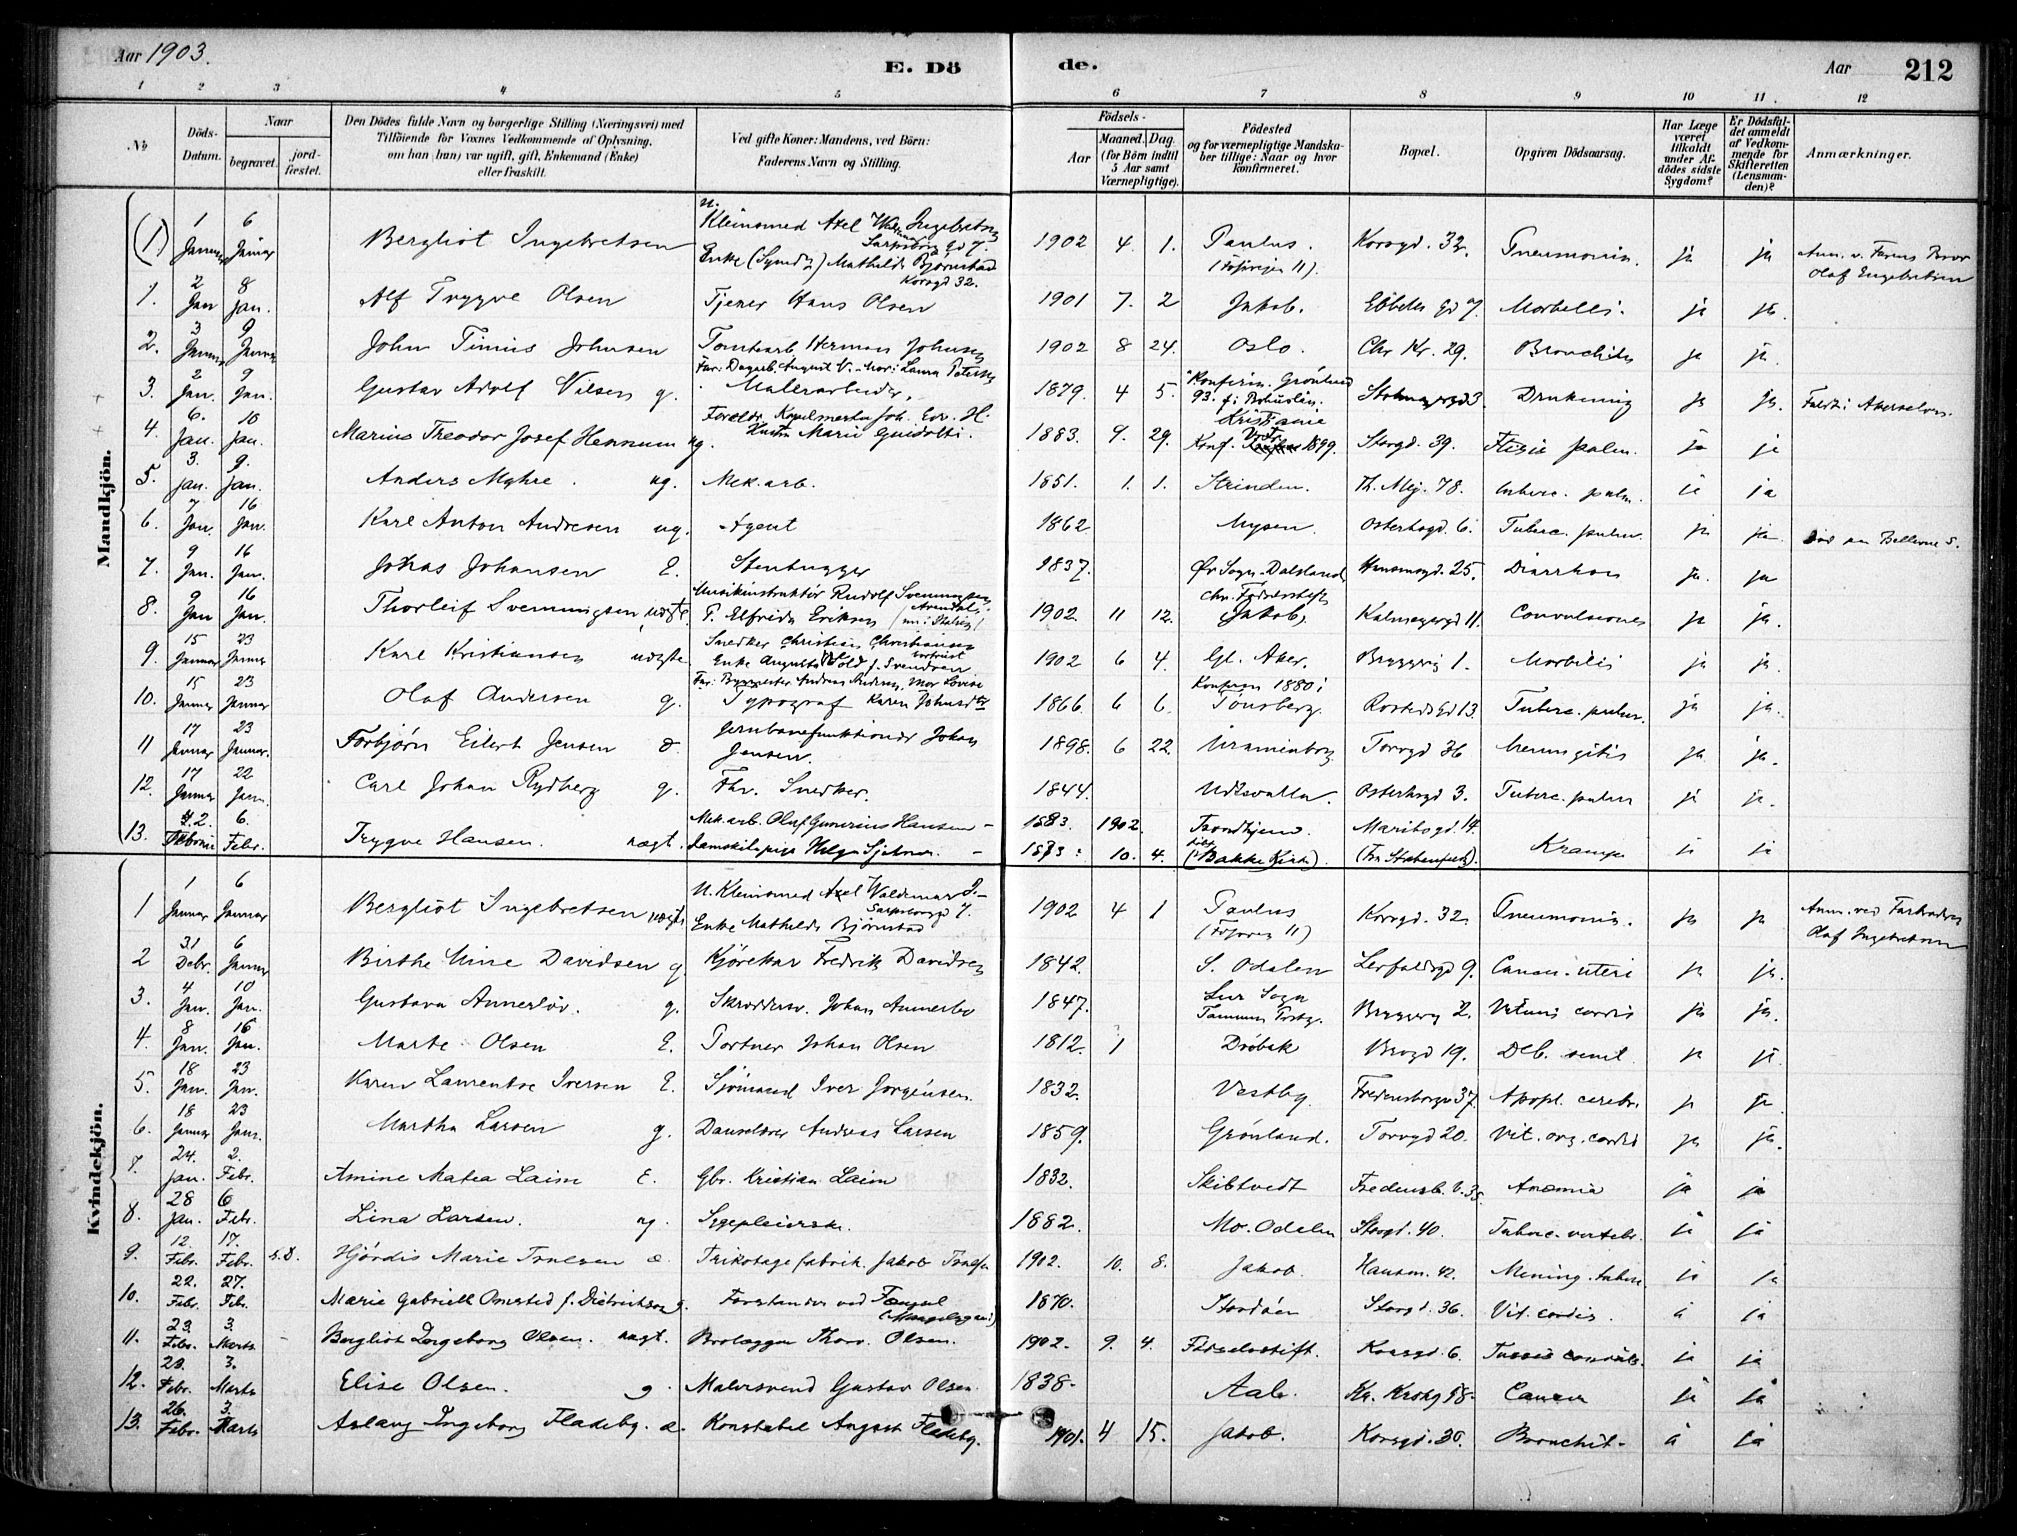 Aar 1903.
E. Dö de.
Aar 212
1 2 3 4 5 6 7 8 9 10 11 12
No.
Döds-Datum.
Naar
begravet.
jordfæstet.
Den Dödes fulde Navn og borgerlige Stilling (Næringsvei) med
Tilföiende for Voxnes Vedkommende af Oplysning,
om han (hun) var ugift, gift, Enkemand (Enke)
eller fraskilt.
Ved gifte Koner: Mandens, ved Börn:
Faderens Navn og Stilling.
Födsels-
Aar
Maaned. Dag.
(for Börn indtil
5 Aar samt
Værnepligtige).
Födested
og for værnepligtige Mandskaber tillige: Naar og hvor
konfirmeret.
Bopæl.
Opgiven Dödsaarsag.
Har Læge
været
tilkaldt
under Afdödes sidste
Sygdom?
Er Dödsfaldet anmeldt
af Vedkommende for
Skifteretten
(Lensmanden)?
Anmærkninger.
Mandkjön.
(1) 1 Januar 6 Januar Bergliot Ingebretsen Kleinsmed Axel Ingebretsen Sarpsborg Gd 7. Enke Mathilde Bjørnstad Korsgd 32. 1902 4 1. Paulus. Korsgd. 32. Pneumonia. ja ja Anm. v. Farens Bror Olaf Engebretsen
1. 2 Jan 8 Jan. Alf Trygve Olsen Tjener Hans Olsen 1901 7. 2 Jakob. Ebbels Gd 7. Morbilli. ja ja.
2. 3 Januar 9 Januar John Timius Johnsen Tomtearb. Herman Johnsen 1902 8 24. Oslo. Chr Kr. 29. Bronchitis ja ja.
3. 2 Jan. 9 Jan. Gustav Adolf Nilsen g. Far: Dagarb. August N. Mor: Laura Petersen Malerarbeider, 1879. 4 5. Konfirm. Grønland 93. f. i Bohuslän. Drukning ja ja. Faldt i Akerselven.
4. 6. Jan. 10 Jan. Marius Theodor Josef Hennum ug. Foreldr. Kapelmester Joh. Edv. H. Hustru Marie Guidotti. 1883. 9. 29. Kristiania Konf. 1899. Storgd. 39. Ftisis pulm. ja ja
5. 3. Jan. 9. Jan. Anders Myhre. ug. Mek. arb. 1851. 1. 1. Strinden. Th. Mej. 78. tuberc. pulm. ja ja
6. 7 Jan. 16 Jan. Karl Anton Andresen ug. Agent 1862 Mysen. Osterhsgd. 6. Tuberc. pulm. ja ja Død paa Bellevue S.
7. 9 Jan. 16 Jan. Johas Johansen E. Stenhugger 1837. Ør Sogn. Dalsland, Hausmsgd. 25. Diarrhoe ja. ja
8. 9 Jan 16 Jan. Thorleif Svenningsen, uægte. Musikinstruktør Rudolf Svenningsen P. Elfrida Eriksen 1902. 11 12. Chr. Fødselsstift. Jakob, Kalmeyergd 11. Convulsiones ja ja.
9. 15 Januar 23 Januar Karl Kristiansen uægte. Snedker Christian Christiansen Enke Augusta Wold f. Svendsen 1902 6 4. Gl. Aker. Bryggerg 1. Morbilis ja ja.
10. 15 Januar 23 Januar Olaf Andersen g. Typograf 1866. 6 6. Konfirm 1880 i Tønsberg. Rosteds Gd 13. Tuberc. pulm. ja ja.
11 17 Januar 23 Januar. Torbjørn Eilert Jensen æ. Jernbanefunktionær Johan Jensen. 1898. 6 22. Uranienborg Torvgd 36 Meningitis ja ja.
12. 17 Januar 22 Jan. Carl Johan Rydberg g. Fhv. Snedker. 1844. Udevalla. Osterhsgd 3. Tuberc. pulm ja ja.
(13. 2. Februar 6. Febr. Trygve Hansen. uægt. Mek. arb. Oluf Gunerius Hansen - 1883. 1902. 10. 4. Trondhjem. (Bakke Kirke). Maribogd. 14. Krampe ja ja
Kvindekjön.
1 1 Januar 6 Januar Bergliot Ingebretsen uægte U. Kleinsmed Axel Valdemar I. Sarpsborgd 7. Enke Mathilde Bjørnstad 1902 4 1 Paulus Korsgd. 32. Pneumonia. ja ja Anm. ved Farbroder Olaf Ingebretsen
2 31 Debr. 6 Januar Birthe Mine Davidsen g. Kjørekar Fredrik Davidsen 1842. S. Odalen Lerfaldsgd 9. Cancer uteri ja ja.
3. 4 Jan. 10 Jan. Gustava Annerløv. g. Skræddersv. Johan Annerløv 1847. Lur Sogn Bryggerg 2. Vitium cordis ja ja.
4. 8 Jan. 16 Jan. Marte Olsen E. Portner Johan Olsen 1812. 1 Drøbak Brogd 19. Deb. senil. ja ja
5. 18 Jan. 23 Jan. Karen Laurentse Iversen E. Sjømand Iver Jørgensen 1832. Vestby. Fredensborgv 37. Apopl. cerebr. ja ja.
6. 18 Januar 23 Jan. Martha Larsen g. Danselærer Andreas Larsen 1859. Grønland. Torvgd 20. Vit. org. cordis ja ja.
7. 24. Jan. 2. Febr. Amine Matea Laim E. Gbr. Kristian Laim 1832. Skibtvedt Fredensb. V. 35. Anæmia ja ja
8. 28 Jan. 6 Febr. Lina Larsen. ug. Sygepleierske. 1882. No. Odalen Storgd. 40. Tuberc. vertebr. ja ja
9. 12. Febr. 17. Febr. s.D. Hjördis Marie Truelsen æ. Trikotagefabrik. Jakob Truelsen 1902. 10. 8. Jakob. Hausm. 42. Mening. tuberc ja ja
10. 22. Febr. 27. Feb. Marie Gabrielle Omsted f. Dietrichson g. Forstander ved Fængsel 1870. Stordøen Storgd. 36. Vit. cordis. ja ja
11. 23. Febr. 3. Marts Bergliot Ingeborg Olsen. uægt. Brolægger Thorv. Olsen. 1902. 9. 4. Fødselsstift. Korsgd. 6. Tussis convuls. ja ja
12. 23. Febr. 3. Marts Elise Olsen. g. Malersvend Gustav Olsen. 1838. Aal. Kr. Krohg 58. Cancer ja ja
13. 26. Febr. 3. Marts Aslaug Ingeborg Fladeby. æ. Konstabel August Fladeby. 1901. 4 15. Jakob. Korsgd. 30. Bronchit. ja ja